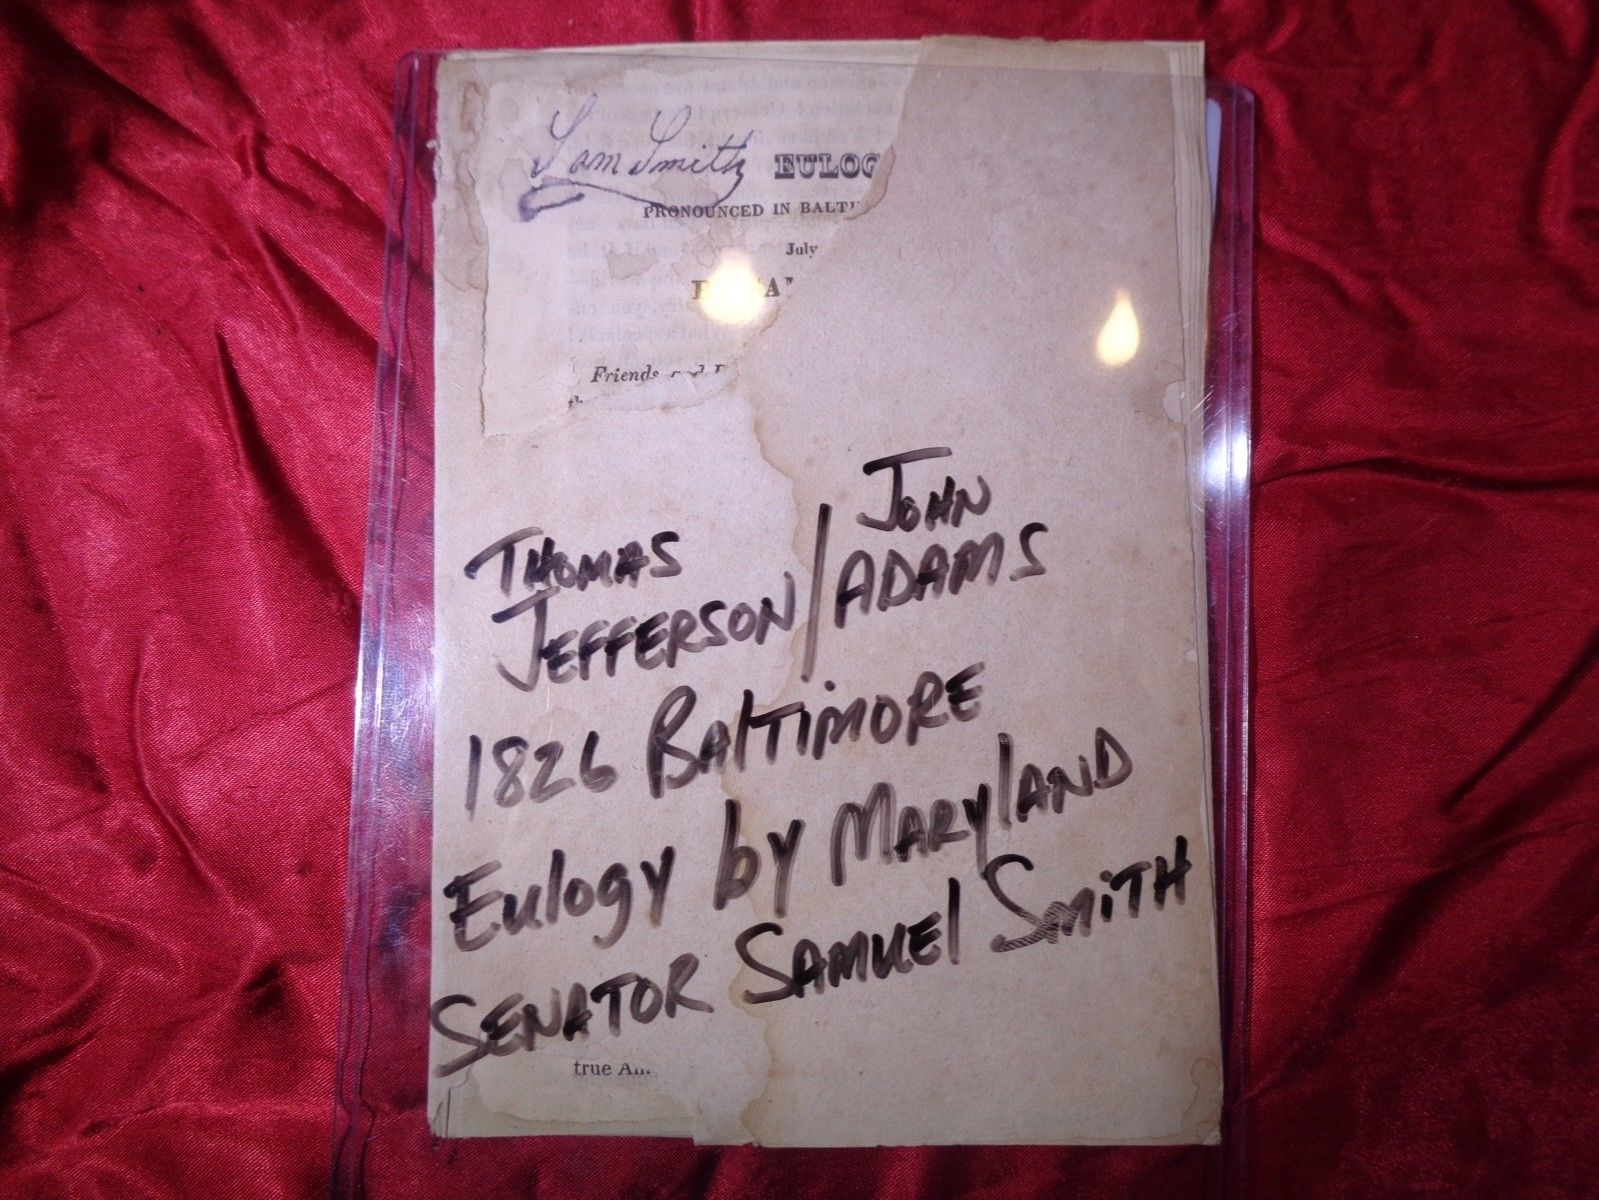 Sam Smith EULOG
PRONOUNCED IN BALTI
July
Friends and
THOMAS JOHN
JEFFERSON / ADAMS
1826 BALTIMORE
EULOGY by MARYLAND
SENATOR SAMUEL SMITH
true Am